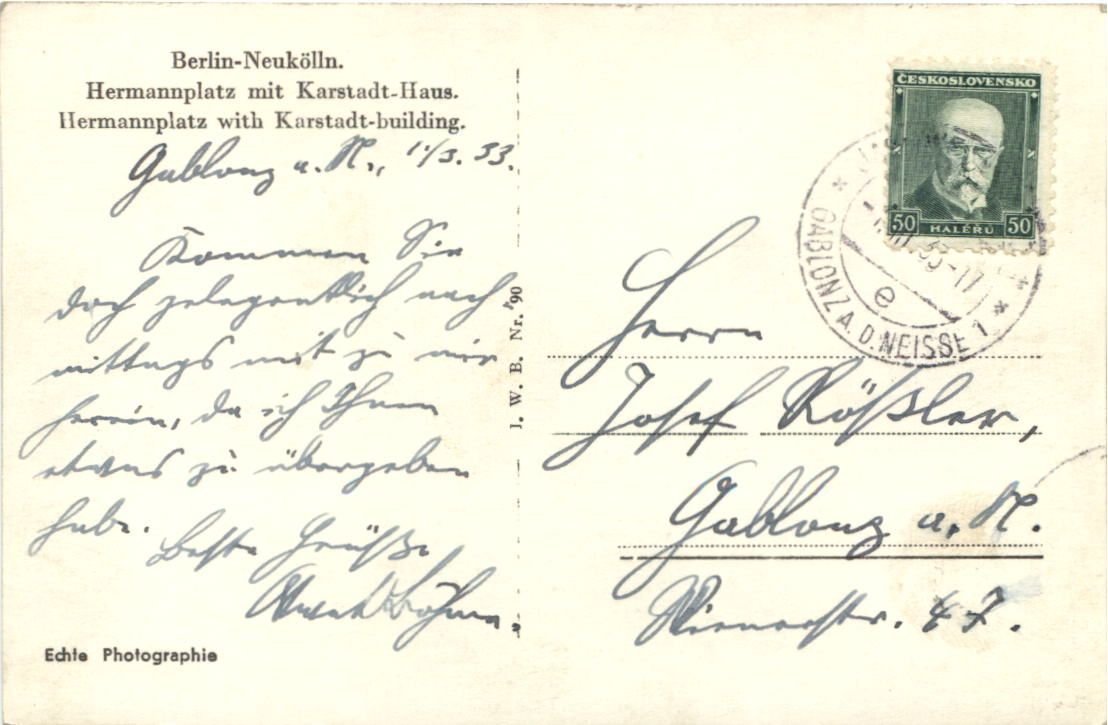 Berlin-Neukölln.
Hermannplatz mit Karstadt-Haus.
Hermannplatz with Karstadt-building.
Gablonz a. N., 11/3. 33.
Kommen Sie
doch gelegentlich nach
mittags mit zu mir
herein, da ich Ihnen
etwas zu übergeben
habe.
Beste Grüße
Böhm
Echte Photographie
J. W. B. Nr. 90
ČESKOSLOVENSKO
50 HALÉŘŮ 50
GABLONZ A. D. NEISSE 1
e
Herrn
Josef Rößler,
Gablonz a. N.
Wienerstr. 47.